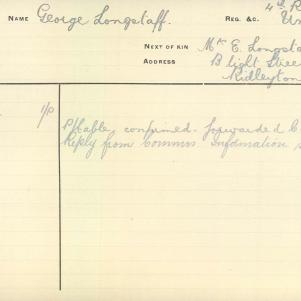 NAME George Longstaff. REG. &C. 4th R
NEXT OF KIN Mr E. Longsta
ADDRESS B light Stree
Ridleyton
1/P P/Cable, confirmed. forwarded C
Reply from Commrs. Information s